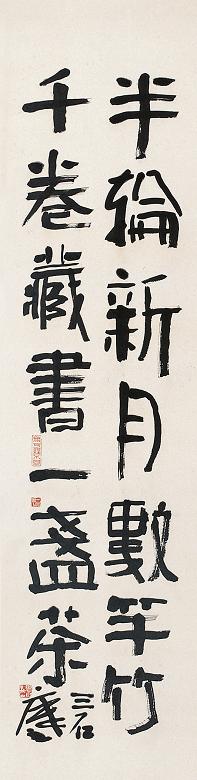 半輪新月數竿竹
千卷藏書一盞茶
三石